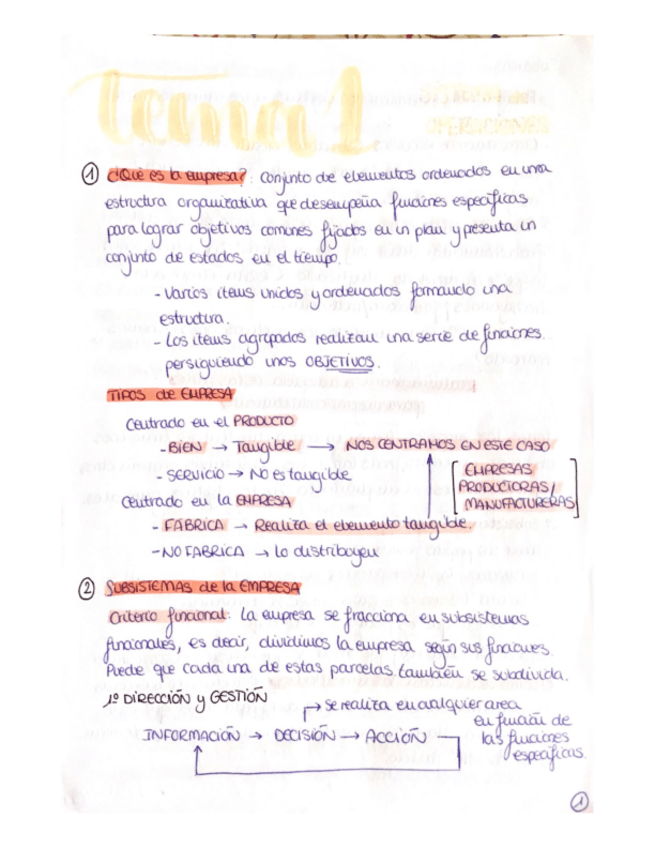 Tema 1
① ¿Qué es la empresa?: conjunto de elementos ordenados en una
estructura organizativa que desempeña funciones específicas
para lograr objetivos comunes fijados en un plan y presenta un
conjunto de estados en el tiempo.
- Varios ítems unidos y ordenados formando una
estructura.
- Los ítems agrupados realizan una serie de funciones.
persiguiendo unos OBJETIVOS.
TIPOS de EMPRESA
Centrado en el PRODUCTO
- BIEN → Tangible → NOS CENTRAMOS EN ESTE CASO
- SERVICIO → NO es tangible
[EMPRESAS
PRODUCTORAS/
MANUFACTURERAS]
Centrado en la EMPRESA
- FABRICA → Realiza el elemento tangible.
- NO FABRICA → Lo distribuyen
② SUBSISTEMAS de la EMPRESA
Criterio funcional: La empresa se fracciona en subsistemas
funcionales, es decir, dividimos la empresa según sus funciones.
Puede que cada una de estas parcelas también se subdivida.
1º DIRECCIÓN y GESTIÓN
→ Se realiza en cualquier area
en función de
las funciones
específicas.
INFORMACIÓN → DECISIÓN → ACCIÓN
1